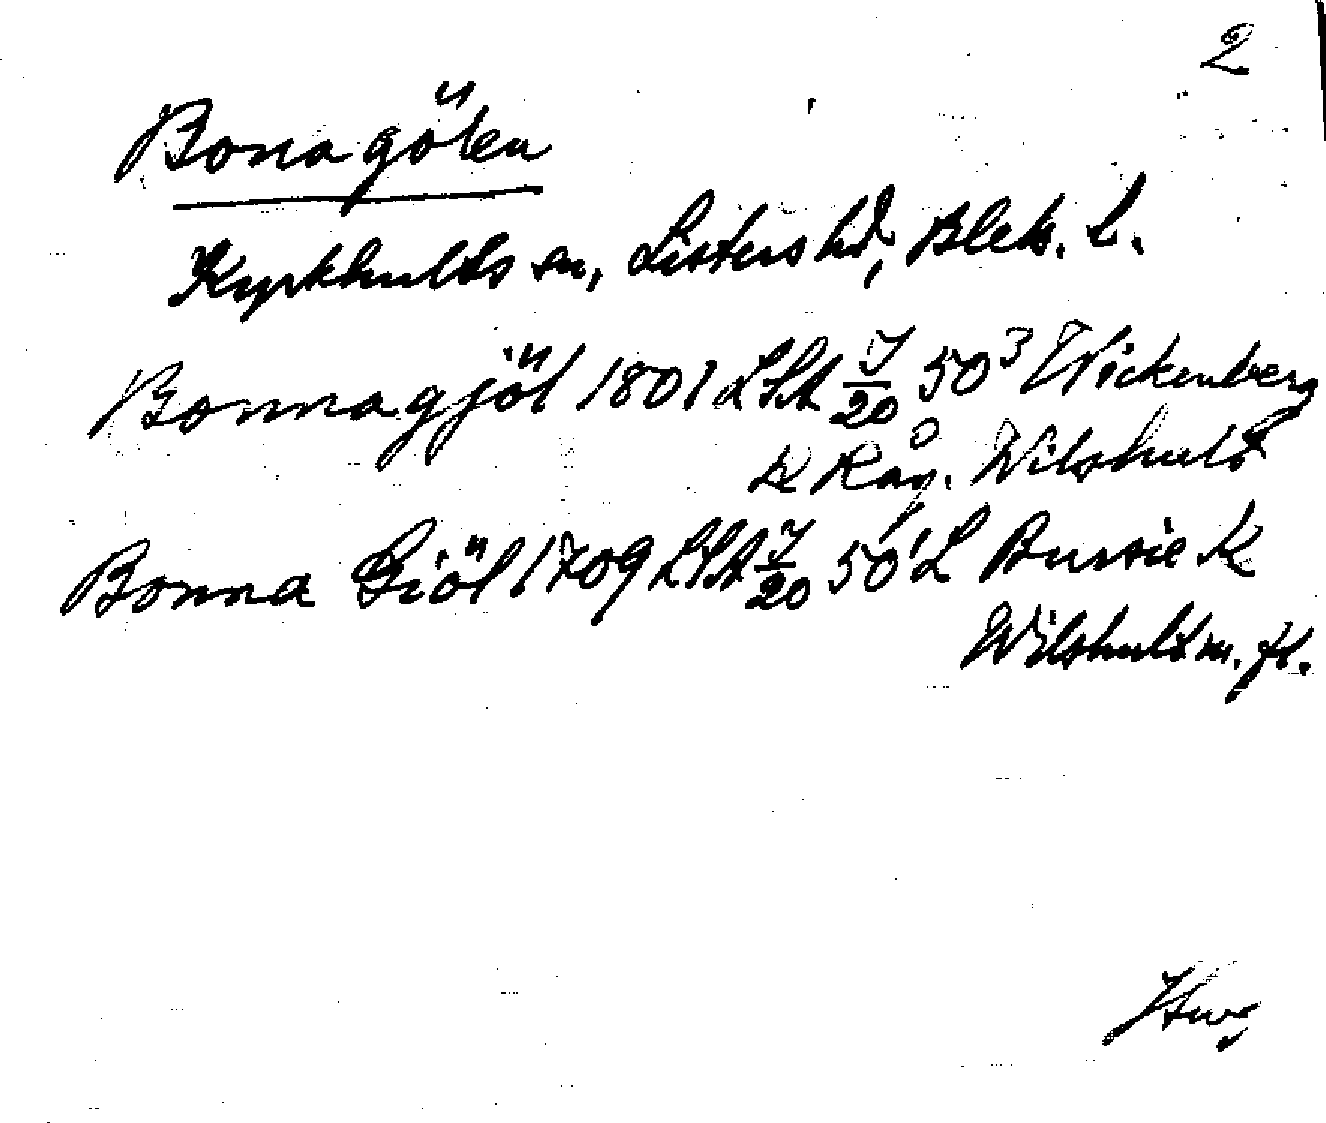 2
Bonagölen
Kyrkhults sn, Listers hd, Blek. l.
Bonnagjöl 1801 LSA J/20 50³ Wickenberg
K Råg. Wilshult
Bonna Giöl 1709 LSA J/20 50¹ L Bursie K
Wilshult m. fl.